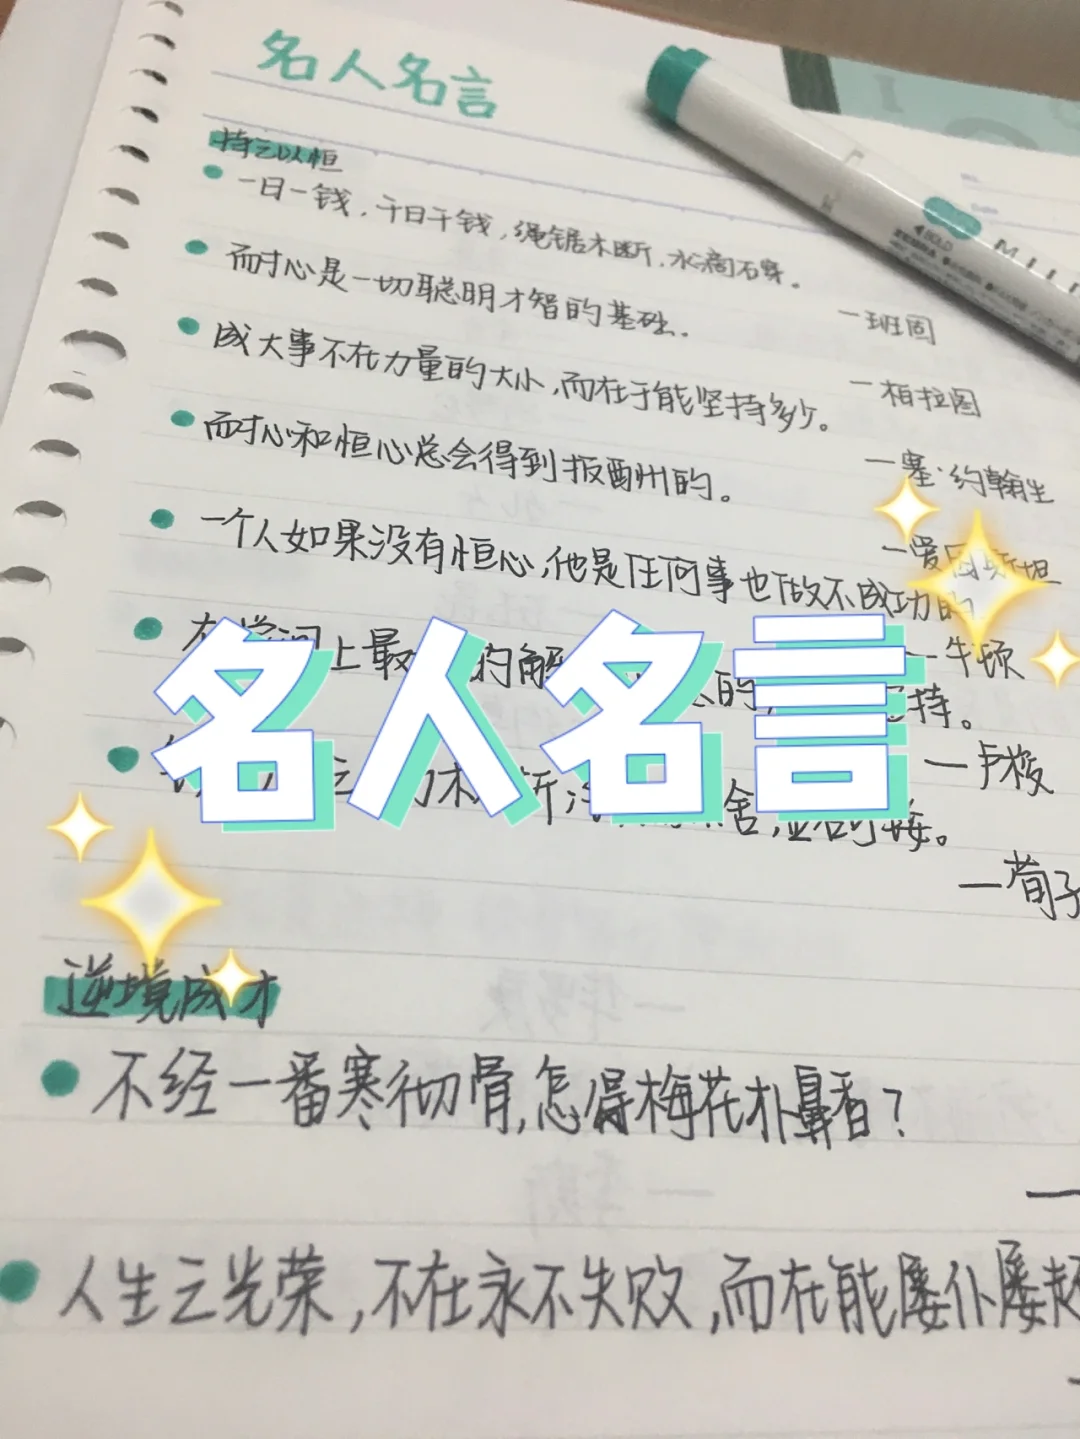 名人名言
持之以恒
一日一钱，千日千钱，绳锯木断，水滴石穿。
—班固
耐心是一切聪明才智的基础．
—柏拉图
成大事不在力量的大小，而在于能坚持多久。
—塞·约翰生
耐心和恒心总会得到报酬州的。
—爱因斯坦
一个人如果没有恒心，他是任何事也做不成功的
—牛顿
上最 的解 的， 持。
—卢梭
舍，
—荀子
名人名言
逆境成才
不经一番寒彻骨，怎得梅花朴鼻香？
人生之光荣，不在永不失败，而在能屡仆屡起
ZEBRA
BOLD
MIL